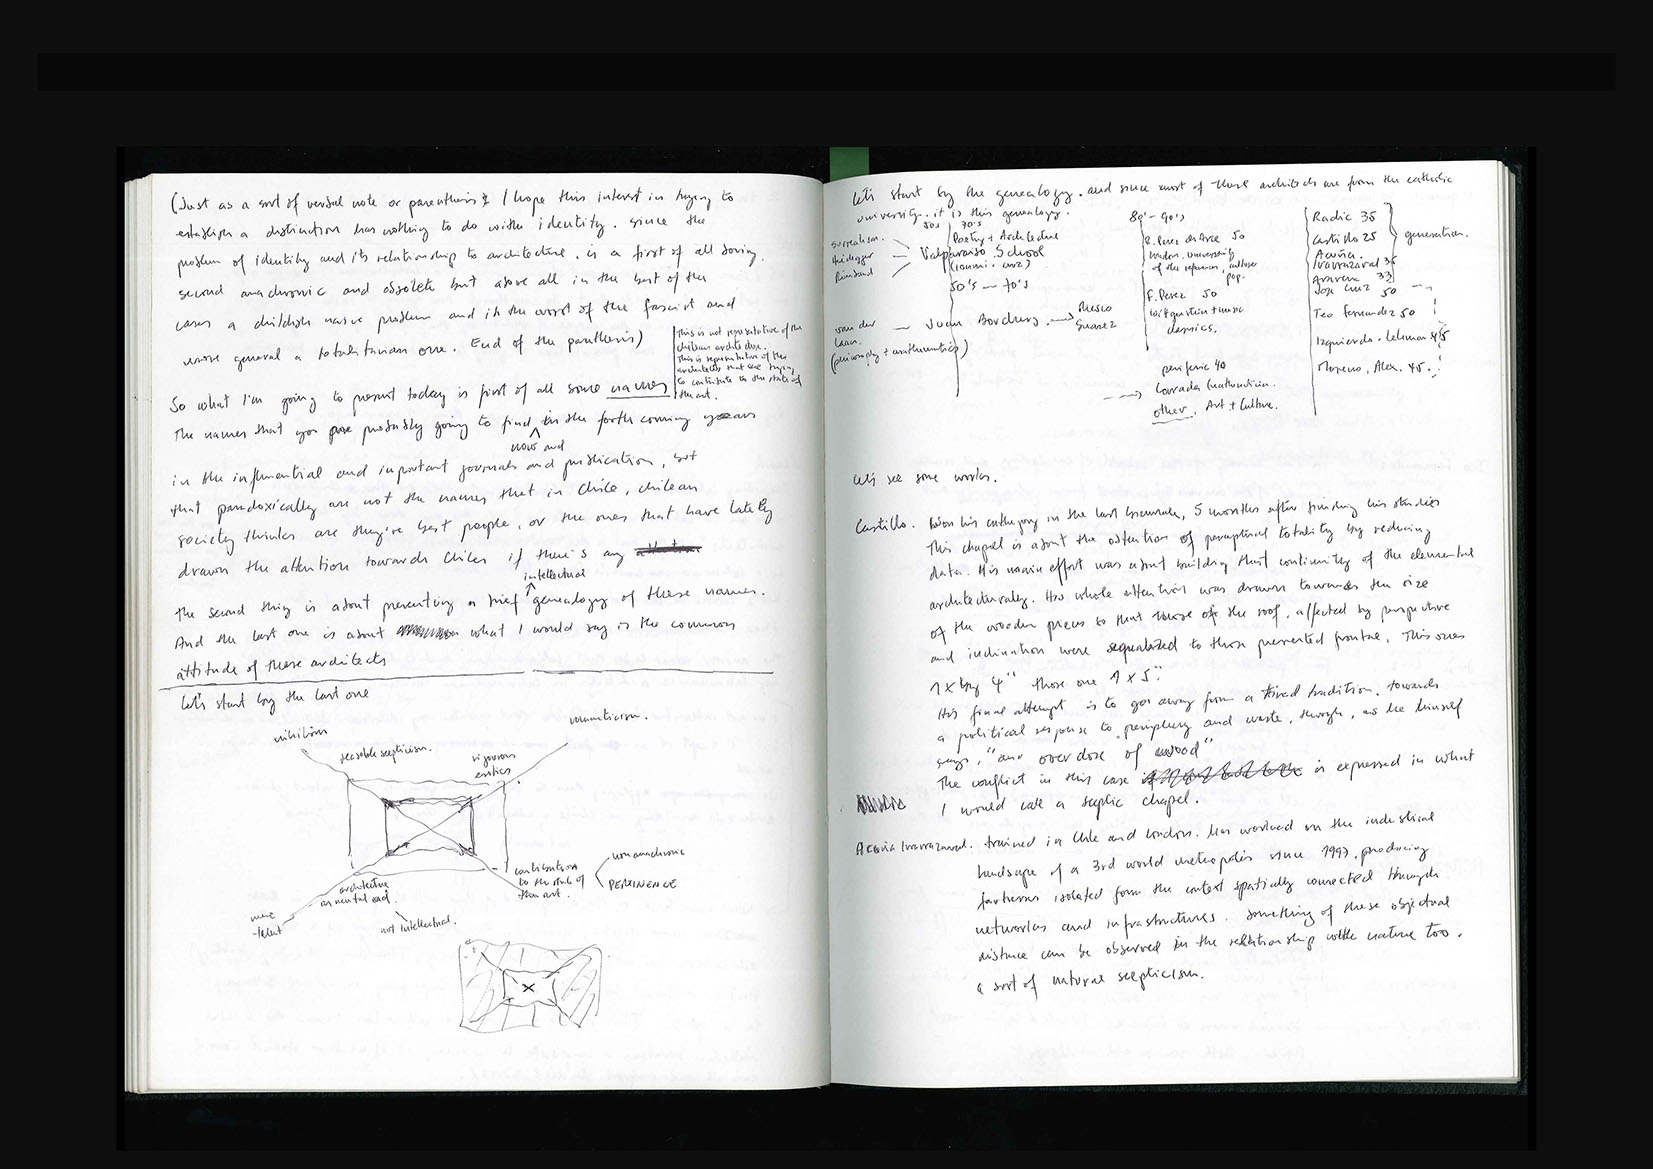 (Just as a sort of verbal note or parenthesis I hope this interest in trying to
establish a distinction has nothing to do with identity. since the
problem of identity and its relationship to architecture, is a first of all boring,
second anachronic and obsolete but above all in the best of the
cases a childish naive problem and in the worst of the fascist and
more general a totalitarian one. End of the parethesis)
This is not representative of the
chilean architecture.
This is representative of the
architects that are trying
to contribute to the state of
the art.
So what I'm going to present today is first of all some names
The names that you probably going to find in the forth coming years
now and
in the influential and important journals and publication, but
that paradoxically are not the names that in Chile, chilean
society thinks are they're best people, or the ones that have lately
drawn the attention towards Chile, if there's any
intellectual
The second thing is about presenting a brief genealogy of these names.
And the last one is about what I would say is the common
attitude of these architects
Let's start by the last one
nihilism
romanticism.
sensible scepticism.
rigorous
erotics
architecture
as mental ead.
mere
talent
not intellectual.
contributions
to the state of
the art.
non anachronic
PERTINENCE
Let's start by the genealogy. and since most of these architects are from the catholic
university. it is this genealogy.
surrealism.
Heidegger
Rimbaud
50s 70's
Poetry + Architecture
Valparaíso School
(Iommi. Cruz)
50's — 70's
van der
Laan.
Juan Borchers. Suarez
(philosophy + mathematics)
80's - 90's
R. Perez de Arce 50
London. university
pop.
F. Perez 50
Wittgenstein + music
classics.
periferic 40
other. Art + Culture.
Radic 35
Castillo 25
Acuña.
Irarrazaval 35
Aravena 33
Jose Cruz 50
Teo Fernandez 50
Izquierdo - Lehman 45
Moreno, Alex. 45.
generation.
Let's see some works.
Castillo. Won his cathegory in the last biennale, 5 months after finishing his studies
This chapel is about the obtention of perceptual totality by reducing
data. His main effort was about building that continuity of the elemental
architecturaly. His whole attention was drawn towards the size
of the wooden pieces so that those of the roof, affected by perspective
and inclination were equalized to those presented frontal. This ones
1 x by 4" those one 1 x 5."
His final attempt is to go away from a tired tradition. towards
a political response to periphery and waste, through, as he himself
says, "an overdose of wood"
The conflict in this case is expressed in what
I would call a sceptic chapel.
Acuña Irarrazaval. trained in Chile and London. has worked on the industrial
landscape of a 3rd world metropolis since 1997, producing
fortresses isolated form the context spatially connected through
networks and infrastructures. Something of these objectual
distance can be observed in the relationship with nature too.
a sort of natural scepticism.